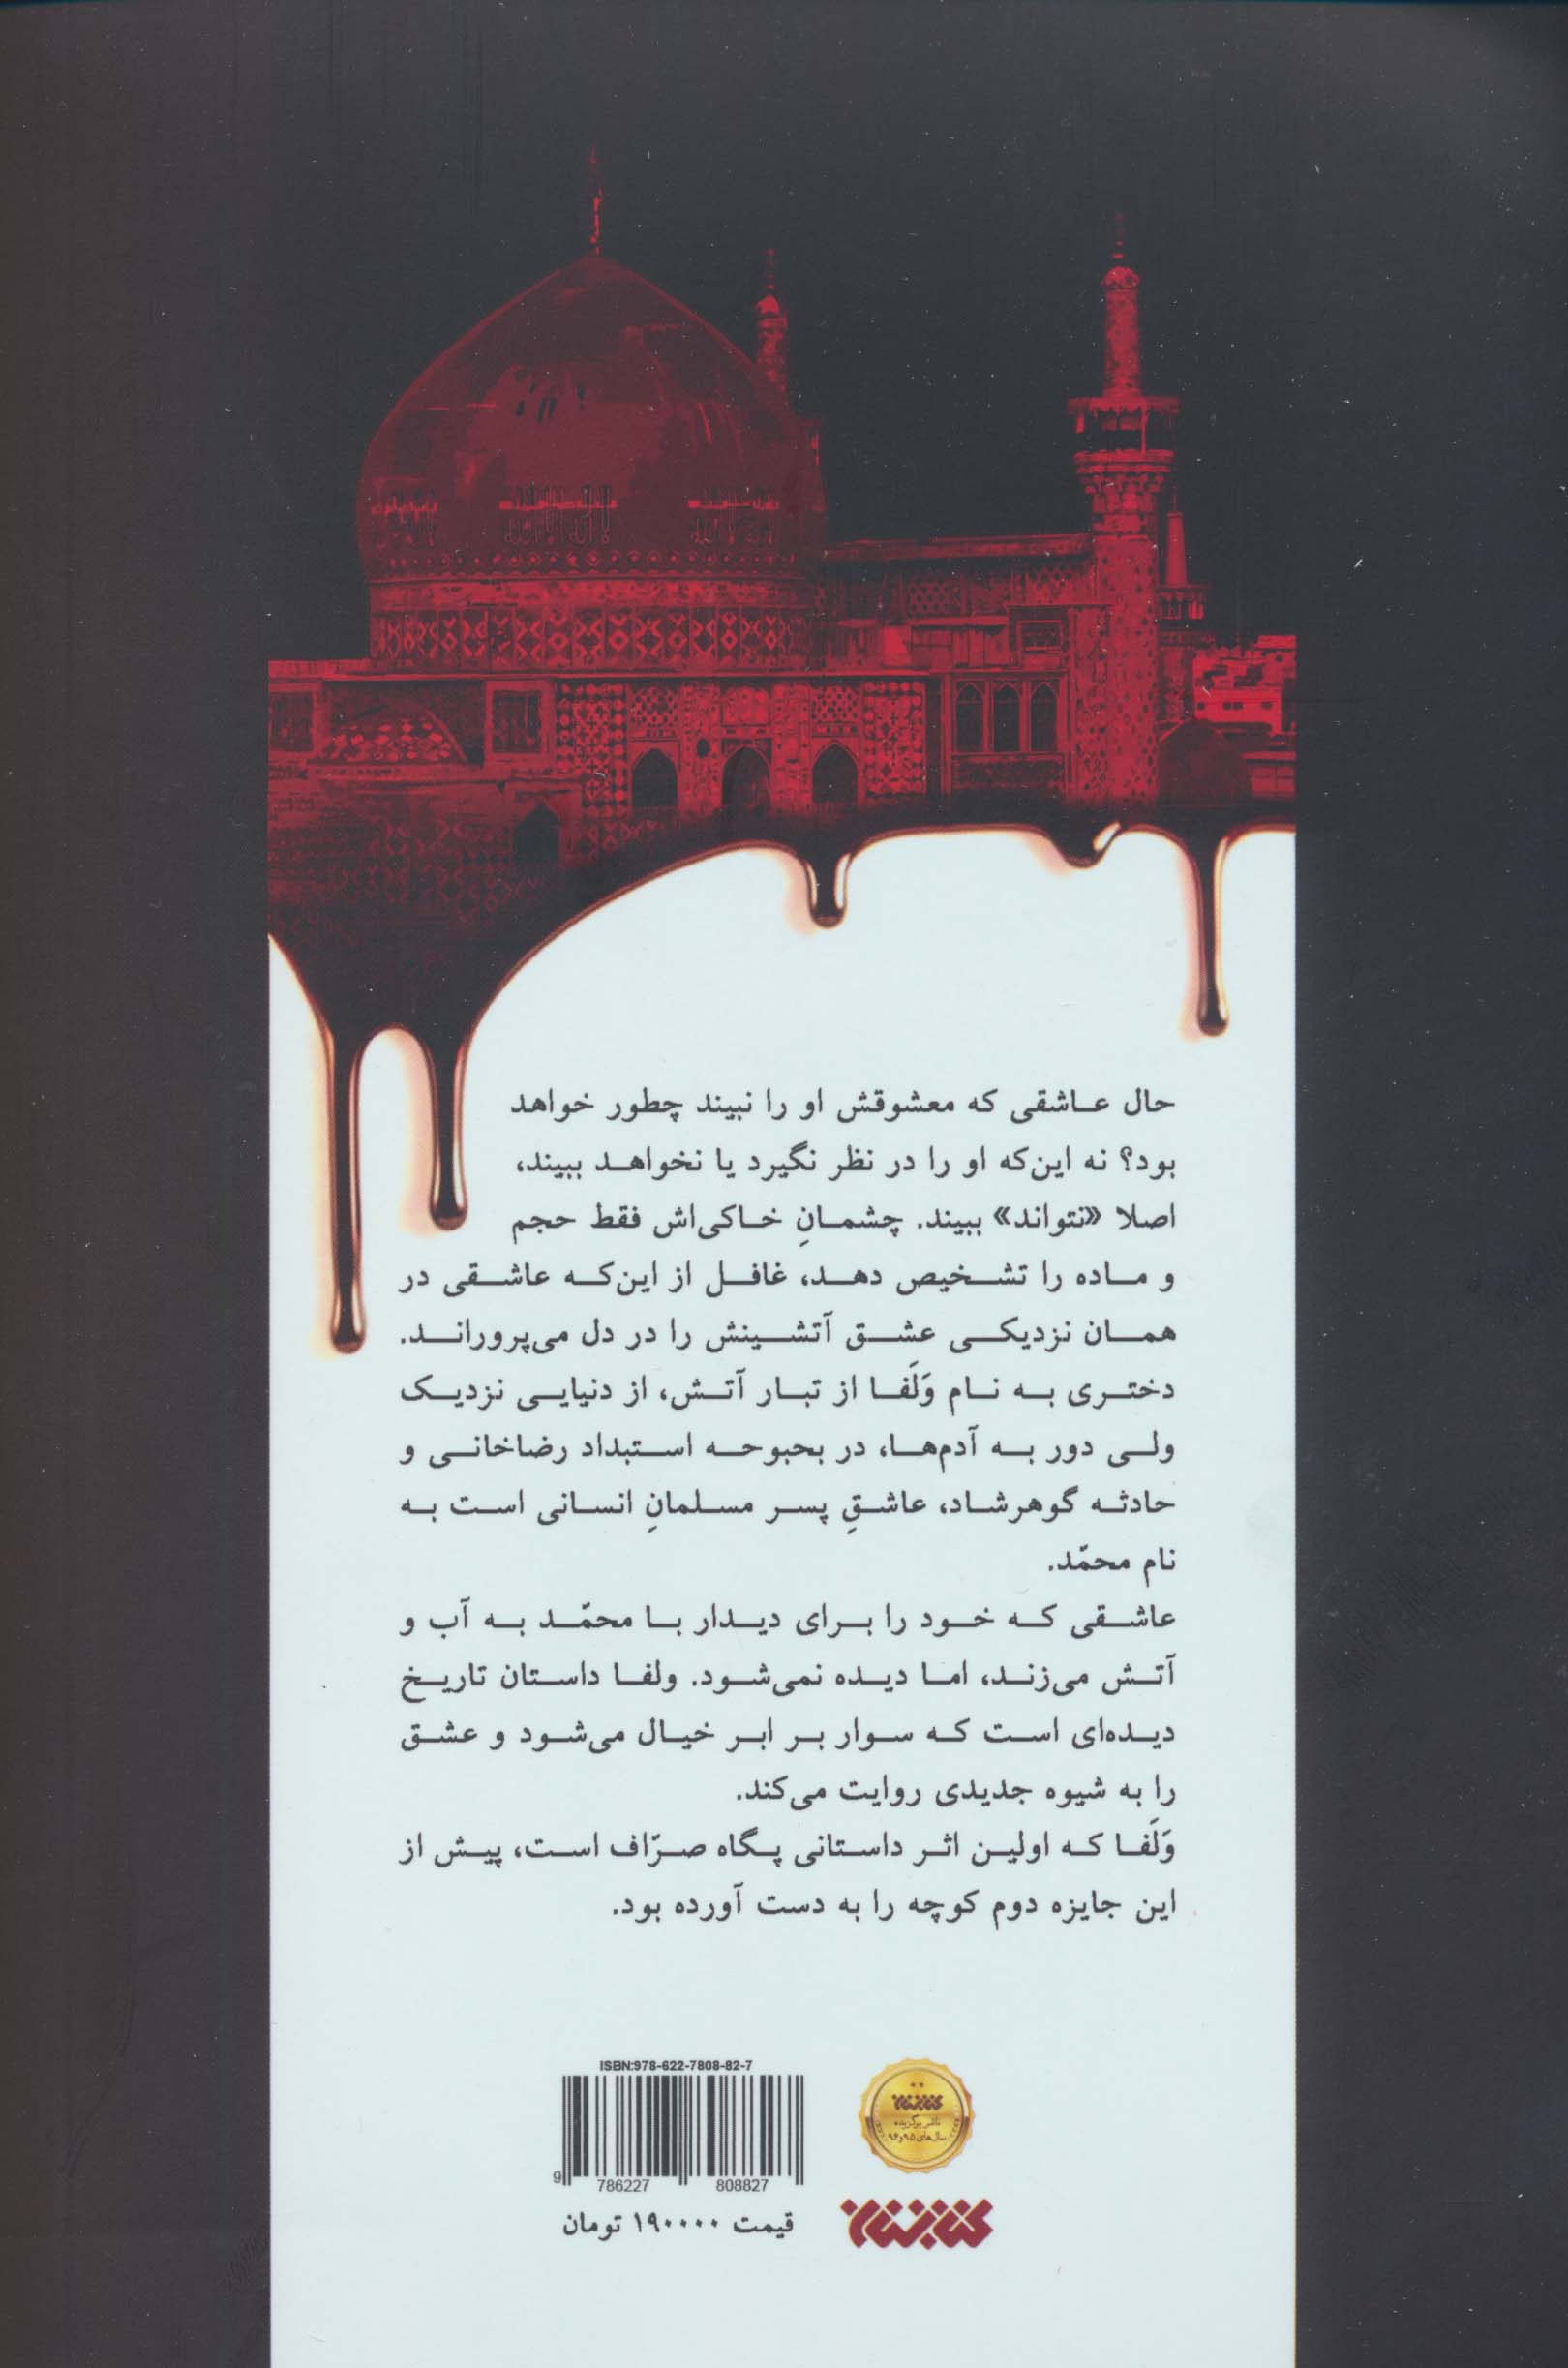 حال عاشقی که معشوقش او را نبیند چطور خواهد
بود؟ نه این‌که او را در نظر نگیرد یا نخواهد ببیند،
اصلا «نتواند» ببیند. چشمانِ خاکی‌اش فقط حجم
و ماده را تشخیص دهد، غافل از این‌که عاشقی در
همان نزدیکی عشق آتشینش را در دل می‌پروراند.
دختری به نام وَلَفا از تبار آتش، از دنیایی نزدیک
ولی دور به آدم‌ها، در بحبوحه استبداد رضاخانی و
حادثه گوهرشاد، عاشقِ پسر مسلمانِ انسانی است به
نام محمّد.
عاشقی که خود را برای دیدار با محمّد به آب و
آتش می‌زند، اما دیده نمی‌شود. ولفا داستان تاریخ
دیده‌ای است که سوار بر ابر خیال می‌شود و عشق
را به شیوه جدیدی روایت می‌کند.
وَلَفا که اولین اثر داستانی پگاه صرّاف است، پیش از
این جایزه دوم کوچه را به دست آورده بود.
ISBN:978-622-7808-82-7
9 786227 808827
قیمت ۱۹۰۰۰۰ تومان
کتابستان
ناشر برگزیده
سال‌های ۹۵ و ۹۶
کتابستان